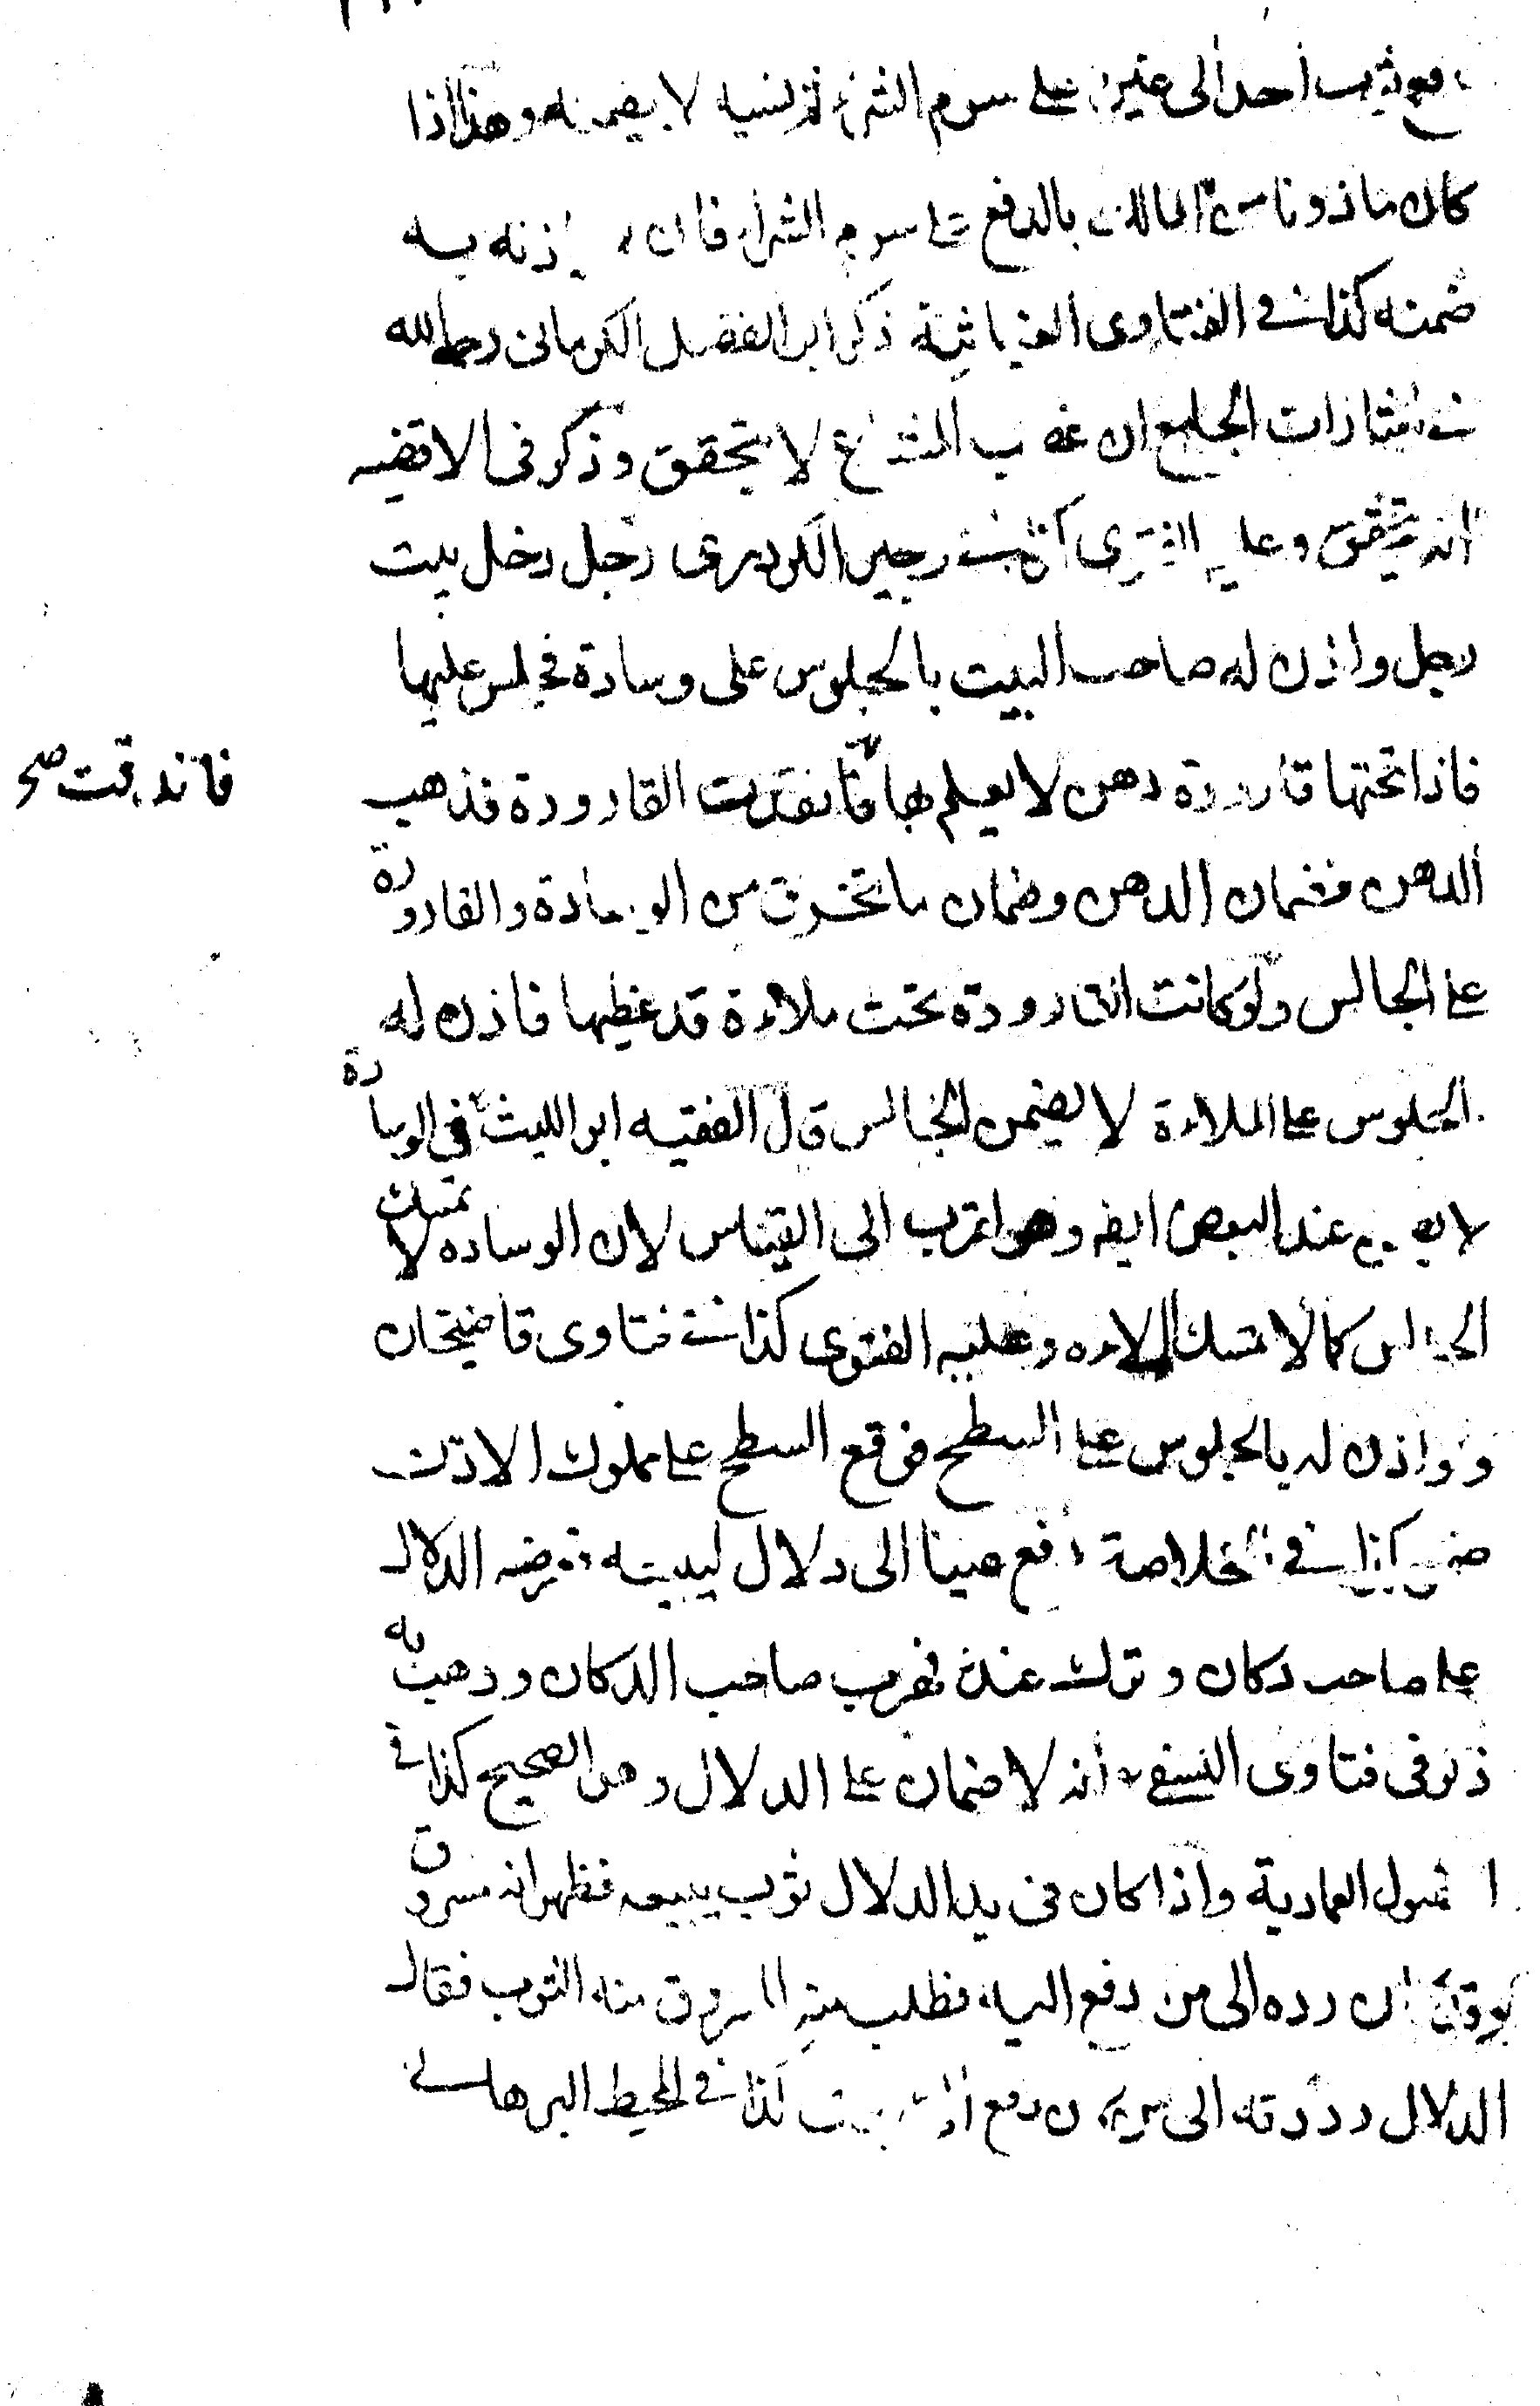 ثوب احد الى عين على سوم الشراء ثم نسيه لا يضمنه وهذا اذا
كان ماذونا من المالك بالدفع على سوم الشراء فان اذنه به
ضمنه كذا في الفتاوى الغياثية ذكر ابو الفضل الكرماني رحمه الله
في اشارات الجامع ان غصب المشاع لا يتحقق وذكر في الاقضيه
انه يتحقق وعليه الفتوى كذا في وجيز الكردرى رجل دخل بيت
رجل واذن له صاحب البيت بالجلوس على وسادة فجلس عليها
فاذا تحتها قارورة دهن لا يعلم بها القارورة فذهب
فاندقت صح
الدهن فضمان الدهن وضمان ما تخرق من الوسادة والقارورة
على الجالس ولو كانت القارورة تحت ملاءة قد غطيها فاذن له
الجلوس على الملاءة لا يضمن الجالس قال الفقيه ابو الليث في الوسادة
لا يضمن عند البعض ايضه وهو اقرب الى القياس لان الوساده لا تمسك
الجالس كما لا تمسك الملاءه وعليه الفتوى كذا في فتاوى قاضيخان
ولو اذن له بالجلوس على السطح فوقع السطح على مملوك الاذن
ضمن كذا في الخلاصة دفع عينا الى دلال ليبيعه فعرضه الدلال
على صاحب دكان وترك عنده فهرب صاحب الدكان وذهب به
ذكر في فتاوى النسفي انه لا ضمان على الدلال وهو الصحيح كذا في
الفصول العمادية واذا كان في يد الدلال ثوب يبيعه فظهر انه مسروق
وقد كان رده الى من دفع اليه فطلب منه المسروق منه الثوب فقال
الدلال رددته الى من دفع كذا في المحيط البرهاني